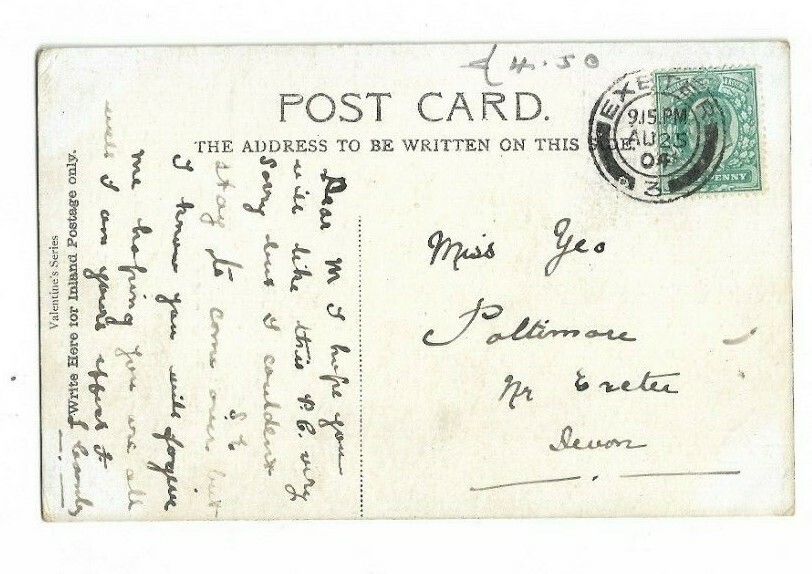 4.50
POST CARD.
THE ADDRESS TO BE WRITTEN ON THIS SIDE.
EXETER
9.15.PM
AU 25
04
3
PENNY
Valentine's Series
Write Here for Inland Postage only.
Dear M I hope you
will like this P.C. very
Sorry but I couldent
stay to come over but
I know you will forgive
me hoping you are all
well I am yours
Miss Yeo
Poltimore
Nr Exeter
Devon